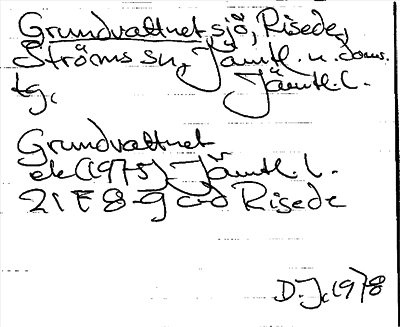 Grundvattnet, sjö, Risede,
Ströms sn, Jämtl. n. doms.
tg, Jämtl. l.
Grundvattnet
ek (1975) Jämtl. l.
21 F 8-9 c-d Risede
D. J. 1978